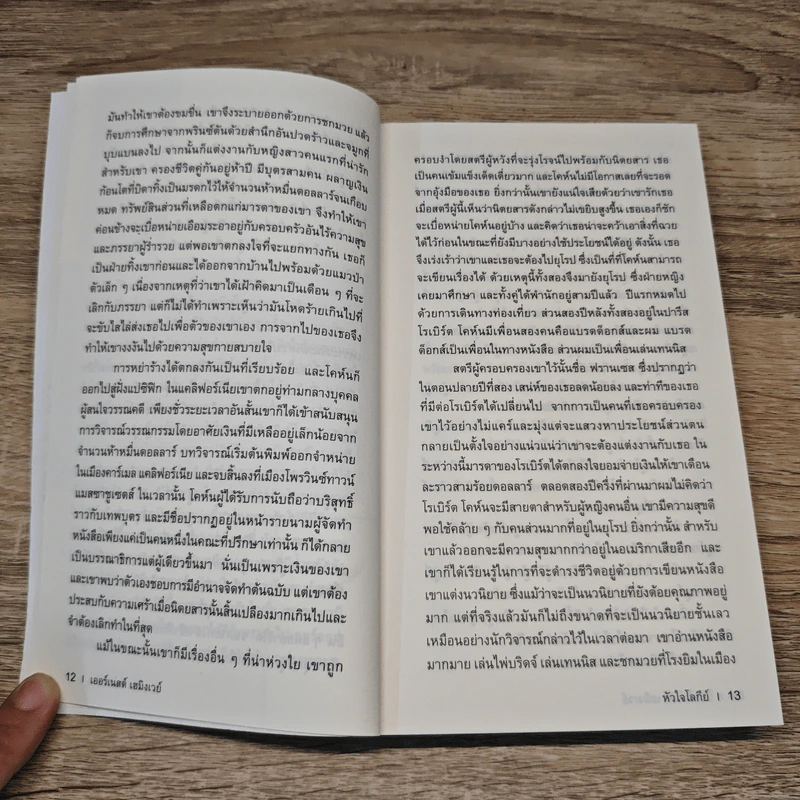 มันทำให้เขาต้องขมขื่น เขาจึงระบายออกด้วยการชกมวย แล้ว
ก็จบการศึกษาจากพรินซ์ตันด้วยสำนึกอันปวดร้าวและจมูกที่
บุบแบนลงไป จากนั้นก็แต่งงานกับหญิงสาวคนแรกที่น่ารัก
สำหรับเขา ครองชีวิตคู่กันอยู่ห้าปี มีบุตรสามคน ผลาญเงิน
ก้อนโตที่บิดาทิ้งเป็นมรดกไว้ให้จำนวนห้าหมื่นดอลลาร์จนเกือบ
หมด ทรัพย์สินส่วนที่เหลือตกแก่มารดาของเขา จึงทำให้เขา
ค่อนข้างจะเบื่อหน่ายเอือมระอาอยู่กับครอบครัวอันไร้ความสุข
และภรรยาผู้ร่ำรวย แต่พอเขาตกลงใจที่จะแยกทางกัน เธอก็
เป็นฝ่ายทิ้งเขาก่อนและได้ออกจากบ้านไปพร้อมด้วยแมวป่า
ตัวเล็ก ๆ เนื่องจากเหตุที่ว่าเขาได้เฝ้าคิดมาเป็นเดือน ๆ ที่จะ
เลิกกับภรรยา แต่ก็ไม่ได้ทำเพราะเห็นว่ามันโหดร้ายเกินไปที่
จะขับไสไล่ส่งเธอไปเพื่อตัวของเขาเอง การจากไปของเธอจึง
ทำให้เขางงงันไปด้วยความสุขกายสบายใจ
การหย่าร้างได้ตกลงกันเป็นที่เรียบร้อย และโคห์นก็
ออกไปสู่ฝั่งแปซิฟิก ในแคลิฟอร์เนียเขาตกอยู่ท่ามกลางบุคคล
ผู้สนใจวรรณคดี เพียงชั่วระยะเวลาอันสั้นเขาก็ได้เข้าสนับสนุน
การวิจารณ์วรรณกรรมโดยอาศัยเงินที่มีเหลืออยู่เล็กน้อยจาก
จำนวนห้าหมื่นดอลลาร์ บทวิจารณ์เริ่มต้นพิมพ์ออกจำหน่าย
ในเมืองคาร์เมล แคลิฟอร์เนีย และจบสิ้นลงที่เมืองโพรวินซ์ทาวน์
แมสซาชูเซตส์ ในเวลานั้น โคห์นผู้ได้รับการนับถือว่าบริสุทธิ์
ราวกับเทพบุตร และมีชื่อปรากฏอยู่ในหน้ารายนามผู้จัดทำ
หนังสือเพียงแค่เป็นคนหนึ่งในคณะที่ปรึกษาเท่านั้น ก็ได้กลาย
เป็นบรรณาธิการแต่ผู้เดียวขึ้นมา นั่นเป็นเพราะเงินของเขา
และเขาพบว่าตัวเองชอบการมีอำนาจจัดทำต้นฉบับ แต่เขาต้อง
ประสบกับความเศร้าเมื่อนิตยสารนั้นสิ้นเปลืองมากเกินไปและ
จำต้องเลิกทำในที่สุด
แม้ในขณะนั้นเขาก็มีเรื่องอื่น ๆ ที่น่าห่วงใย เขาถูก
12 | เออร์เนสต์ เฮมิงเวย์
ครอบงำโดยสตรีผู้หวังที่จะรุ่งโรจน์ไปพร้อมกับนิตยสาร เธอ
เป็นคนเข้มแข็งเด็ดเดี่ยวมาก และโคห์นไม่มีโอกาสเลยที่จะรอด
จากอุ้งมือของเธอ ยิ่งกว่านั้นเขายังแน่ใจเสียด้วยว่าเขารักเธอ
เมื่อสตรีผู้นี้เห็นว่านิตยสารดังกล่าวไม่เขยิบสูงขึ้น เธอเองก็ชัก
จะเบื่อหน่ายโคห์นอยู่บ้าง และคิดว่าเธอน่าจะคว้าเอาสิ่งที่ฉวย
ได้ไว้ก่อนในขณะที่ยังมีบางอย่างใช้ประโยชน์ได้อยู่ ดังนั้น เธอ
จึงเร่งเร้าว่าเขาและเธอจะต้องไปยุโรป ซึ่งเป็นที่ที่โคห์นสามารถ
จะเขียนเรื่องได้ ด้วยเหตุนี้ทั้งสองจึงมายังยุโรป ซึ่งฝ่ายหญิง
เคยมาศึกษา และทั้งคู่ได้พำนักอยู่สามปีแล้ว ปีแรกหมดไป
ด้วยการเดินทางท่องเที่ยว ส่วนสองปีหลังทั้งสองอยู่ในปารีส
โรเบิร์ต โคห์นมีเพื่อนสองคนคือแบรดด็อกส์และผม แบรด
ด็อกส์เป็นเพื่อนในทางหนังสือ ส่วนผมเป็นเพื่อนเล่นเทนนิส
สตรีผู้ครอบครองเขาไว้นั้นชื่อ ฟรานเซส ซึ่งปรากฏว่า
ในตอนปลายปีที่สอง เสน่ห์ของเธอลดน้อยลง และท่าทีของเธอ
ที่มีต่อโรเบิร์ตได้เปลี่ยนไป จากการเป็นคนที่เธอครอบครอง
เขาไว้อย่างไม่แคร์และมุ่งแต่จะแสวงหาประโยชน์ส่วนตน
กลายเป็นตั้งใจอย่างแน่วแน่ว่าเขาจะต้องแต่งงานกับเธอ ใน
ระหว่างนี้มารดาของโรเบิร์ตได้ตกลงใจยอมจ่ายเงินให้เขาเดือน
ละราวสามร้อยดอลลาร์ ตลอดสองปีครึ่งที่ผ่านมาผมไม่คิดว่า
โรเบิร์ต โคห์นจะมีสายตาสำหรับผู้หญิงคนอื่น เขามีความสุขดี
พอใช้คล้าย ๆ กับคนส่วนมากที่อยู่ในยุโรป ยิ่งกว่านั้น สำหรับ
เขาแล้วออกจะมีความสุขมากกว่าอยู่ในอเมริกาเสียอีก และ
เขาก็ได้เรียนรู้ในการที่จะดำรงชีวิตอยู่ด้วยการเขียนหนังสือ
เขาแต่งนวนิยาย ซึ่งแม้ว่าจะเป็นนวนิยายที่ยังด้อยคุณภาพอยู่
มาก แต่ที่จริงแล้วมันก็ไม่ถึงขนาดที่จะเป็นนวนิยายชั้นเลว
เหมือนอย่างนักวิจารณ์กล่าวไว้ในเวลาต่อมา เขาอ่านหนังสือ
มากมาย เล่นไพ่บริดจ์ เล่นเทนนิส และชกมวยที่โรงยิมในเมือง
หัวใจโลกีย์ | 13